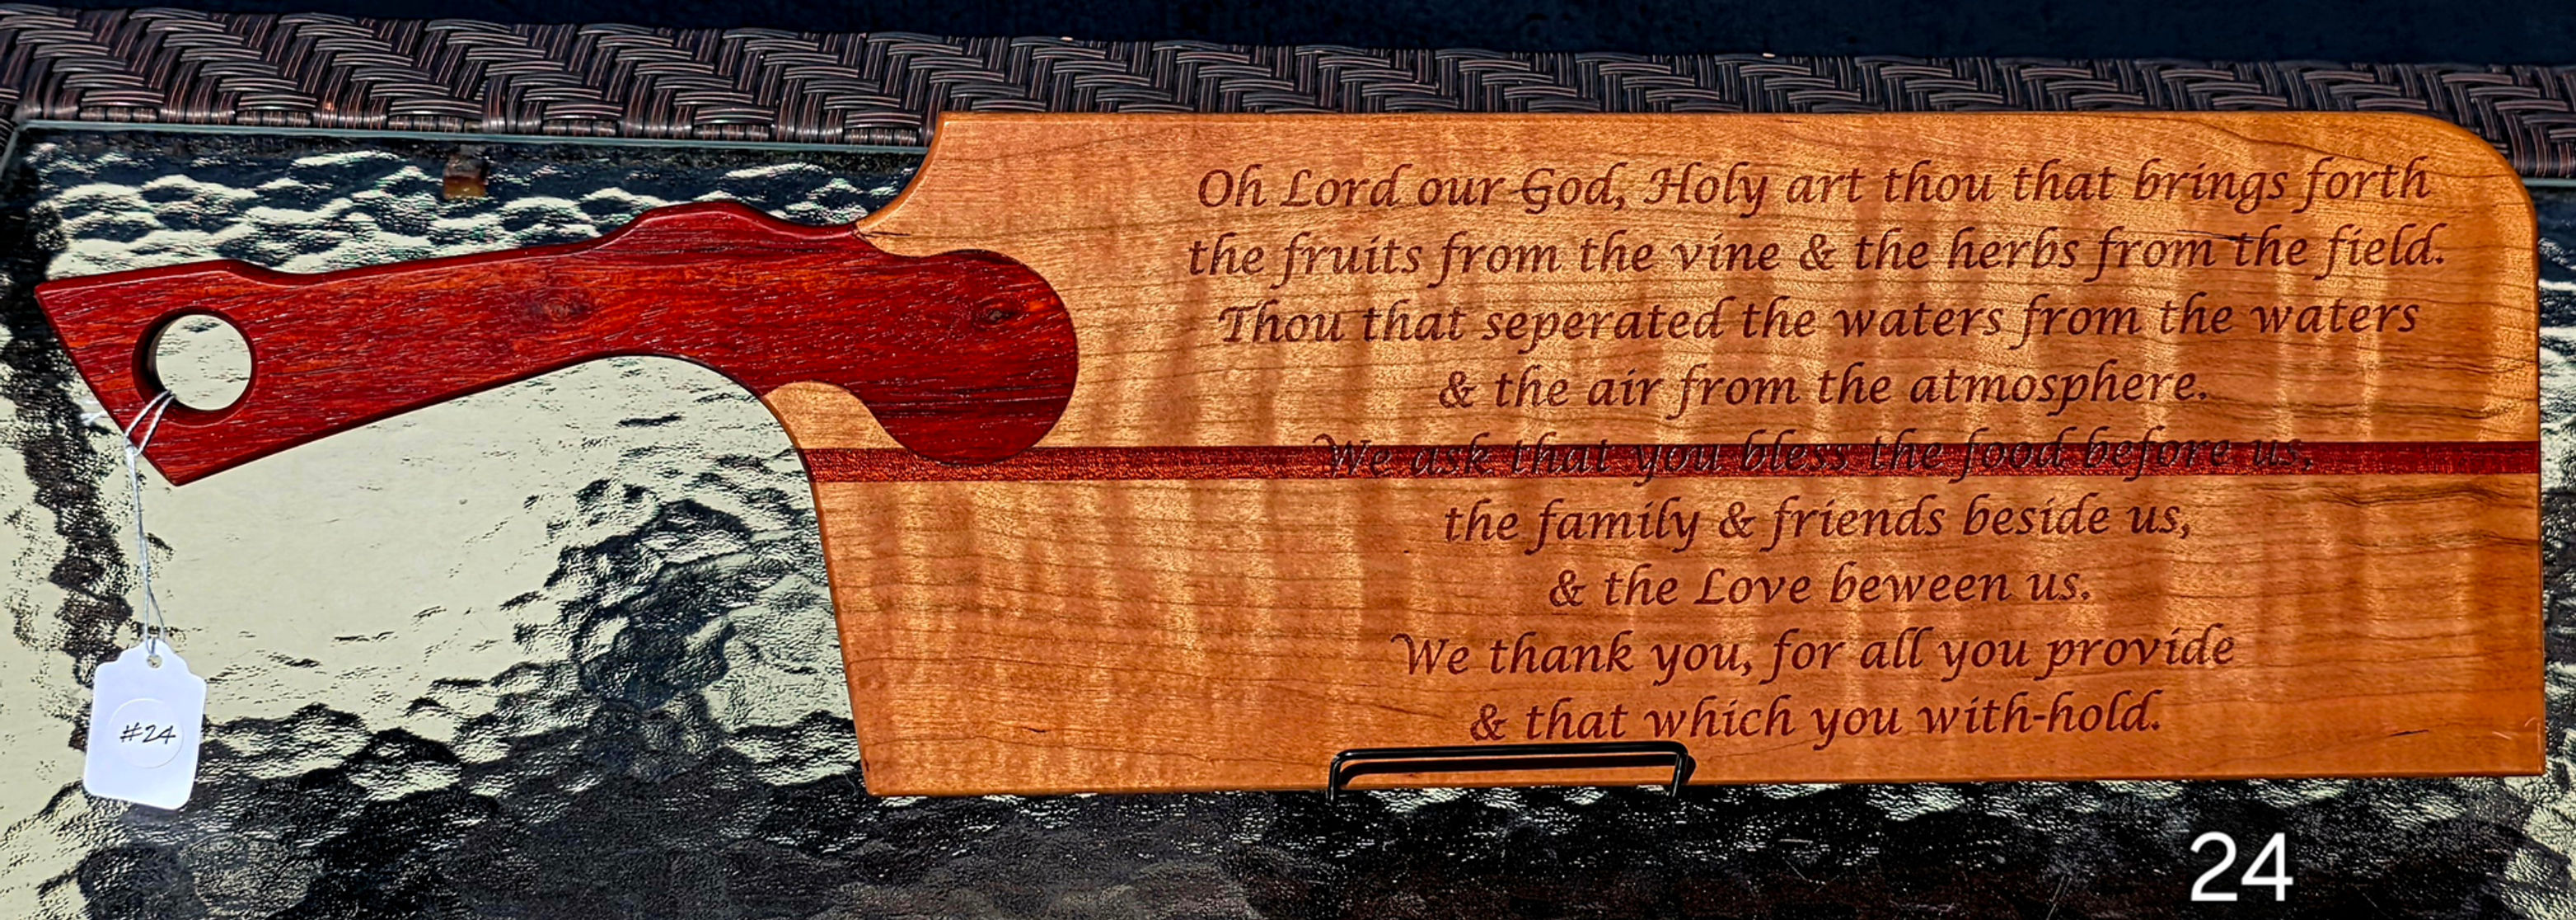 Oh Lord our God, Holy art thou that brings forth
the fruits from the vine & the herbs from the field.
Thou that seperated the waters from the waters
& the air from the atmosphere.
We ask that you bless the food before us,
the family & friends beside us,
& the Love beween us.
We thank you, for all you provide
& that which you with-hold.
#24
24